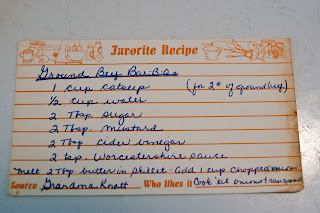 Favorite Recipe
Ground Beef Bar-B-Qs
1 cup catsup (for 2# of ground beef)
1/2 cup water
2 Tbsp. sugar
2 Tbsp. mustard
2 Tbsp. cider vinegar
2 tsp. Worcestershire sauce
Melt 2 Tbsp butter in skillet. Add 1 cup chopped onion
Source Grandma Knott Who likes it Cook 'til onions